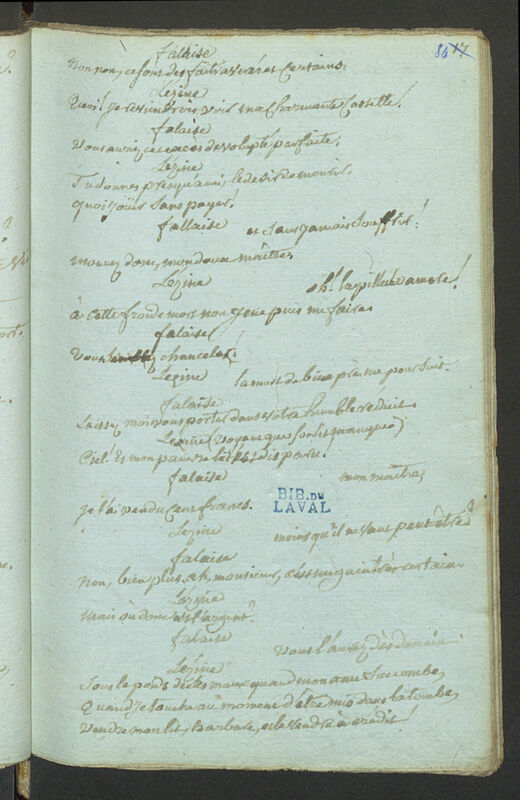 84 17
falaise
Non non, ce sont des faits averés et certains.
Lezine
Quoi! je reviendrois voir ma charmante Cassette!
falaise
Vous auriez ce excès de volupté parfaite.
Lézine
Tu donnes presqu'ami, le desir de mourir.
quoi jouir sans payer!
fallaise
et sans jamais souffrir!
mourez donc, mon doux maître.
Lezine
oh! la pillule amere!
à cette froide mort non je ne puis me faire.
falaise
Vous chancelez!
Lezine
la mort de bien près me poursuit.
falaise
Laissez moi vous porter dans votre humble réduit.
Lezine (voyant que son lit manque)
Ciel. Et mon pauvre lit disparu.
falaise
mon maître,
je l'ai vendu cent francs.
BIB. DU
LAVAL
Lezine
moins qu'il ne vaut peut être?
falaise
Non, bien plus, ah, monsieur, c'est un gain très certain.
Lézine
Mais où donc est l'argent?
falaise
Vous l'aurez dès demain.
Lézine
Sous le poids de ces maux quand mon ame succombe,
Quand je touche au moment d'être mis dans la tombe,
Vendre mon lit, Barbare, et le vendre à crédit!